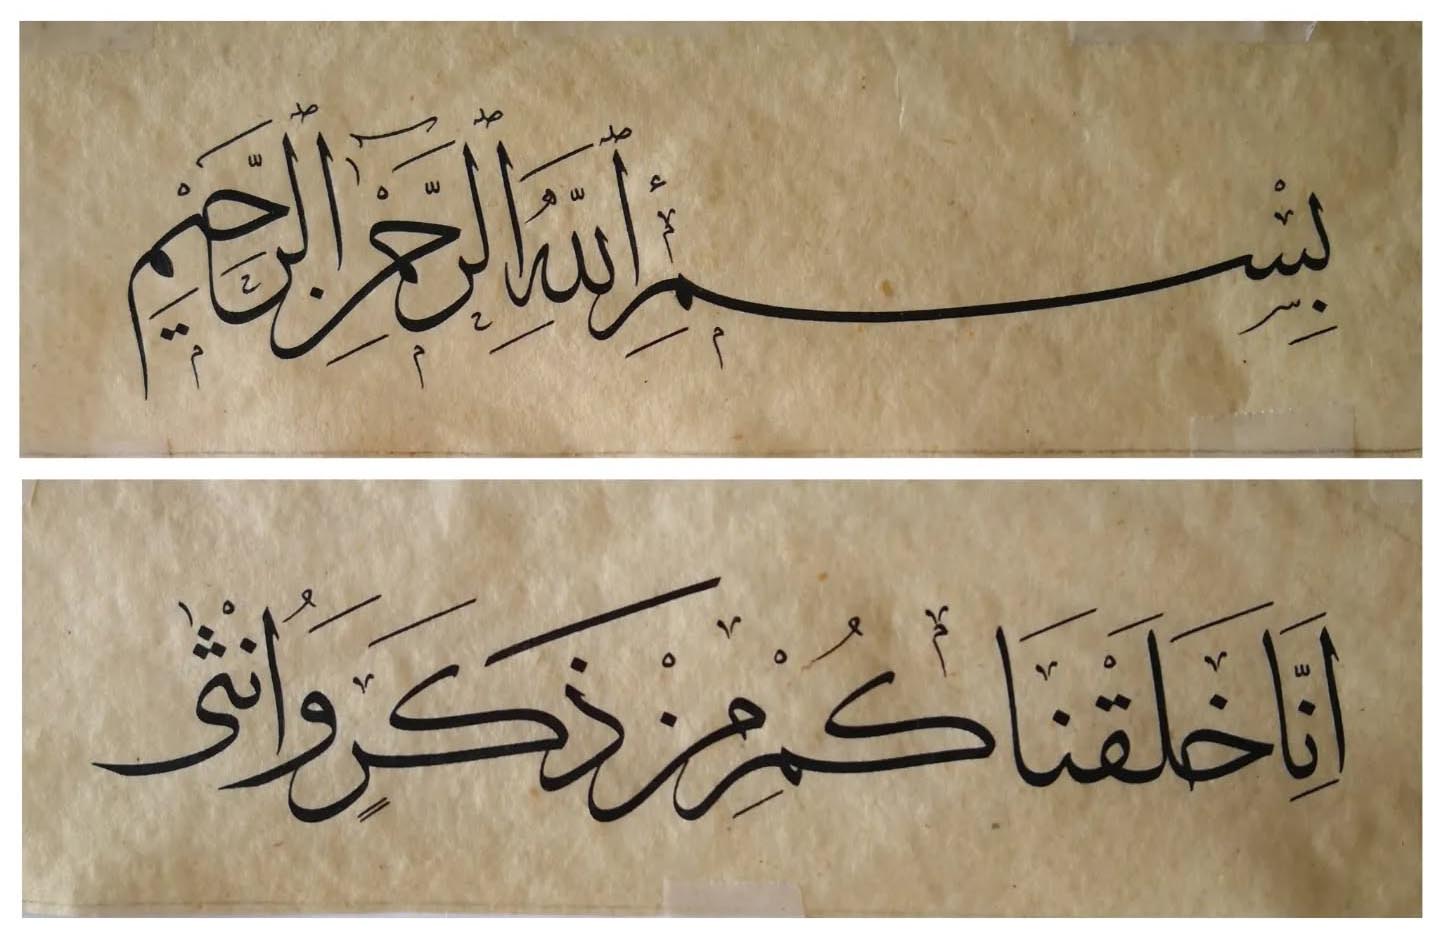 بِسْمِ ٱللَّهِ ٱلرَّحْمٰنِ ٱلرَّحِيْمِ
اِنَّا خَلَقْنَاكُمْ مِنْ ذَكَرٍ وَاُنْثٰى